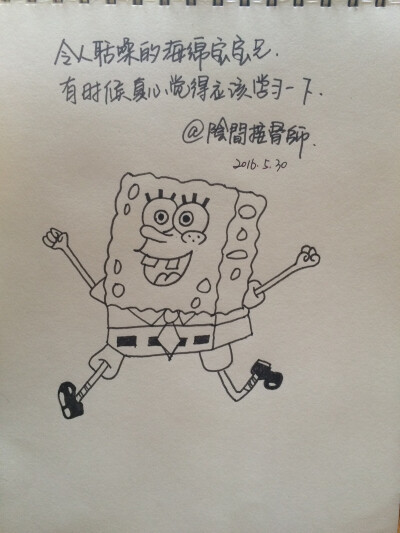 令人聒噪的海绵宝宝兄.
有时候真心觉得应该学习一下.
@陰間接骨師.
2016.5.30